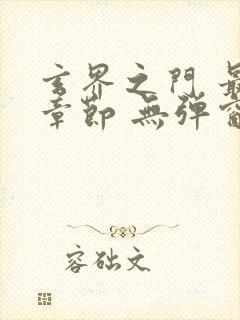 玄界之門 最
章節 無彈窗
容础文